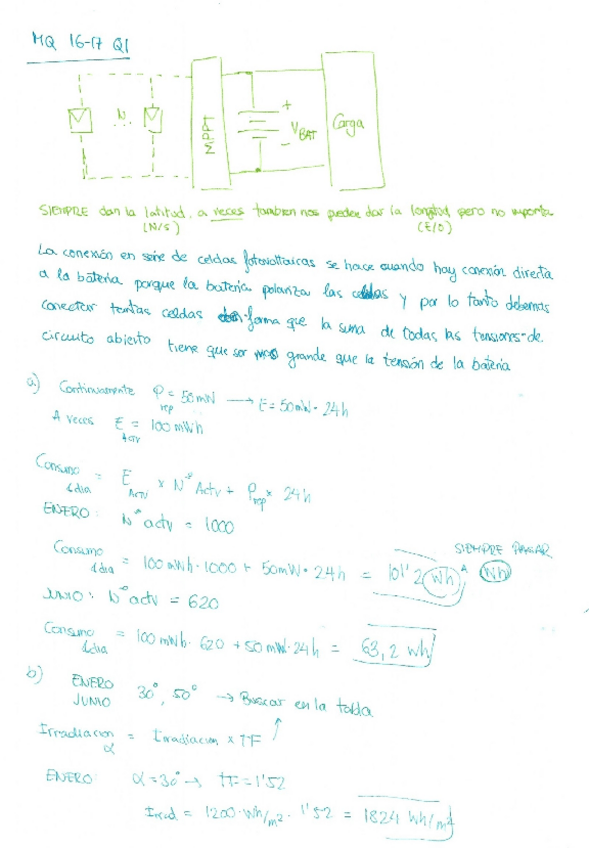 MQ 16-17 Q1
N
MPPT
+
V_BAT
-
Carga
SIEMPRE dan la latitud, a veces tambien nos pueden dar la longitud, pero no importa
(N/S) (E/O)
La conexión en serie de celdas fotovoltaicas se hace cuando hay conexión directa
a la bateria, porque la bateria polariza las celdas y por lo tanto debemos
conectar tantas celdas forma que la suma de todas las tensiones de
circuito abierto tiene que ser mas grande que la tensión de la bateria
a) Continuamente P_rep = 50mW → E = 50mW · 24h
A veces E_Actv = 100 mWh
Consumo_1dia = E_Actv × Nº Actv + P_rep × 24h
ENERO: Nº actv = 1000
SIEMPRE PASAR
Consumo_1dia = 100 mWh · 1000 + 50mW · 24h = 101'2 Wh Wh
JUNIO: Nº actv = 620
Consumo_1dia = 100 mWh · 620 + 50 mW · 24h = 63,2 Wh
b) ENERO
JUNIO 30°, 50° → Buscar en la tabla
Irradiacion_α = Irradiacion × TF
ENERO: α = 30° → TF = 1'52
Irrad = 1200 · Wh/m² · 1'52 = 1824 Wh/m²